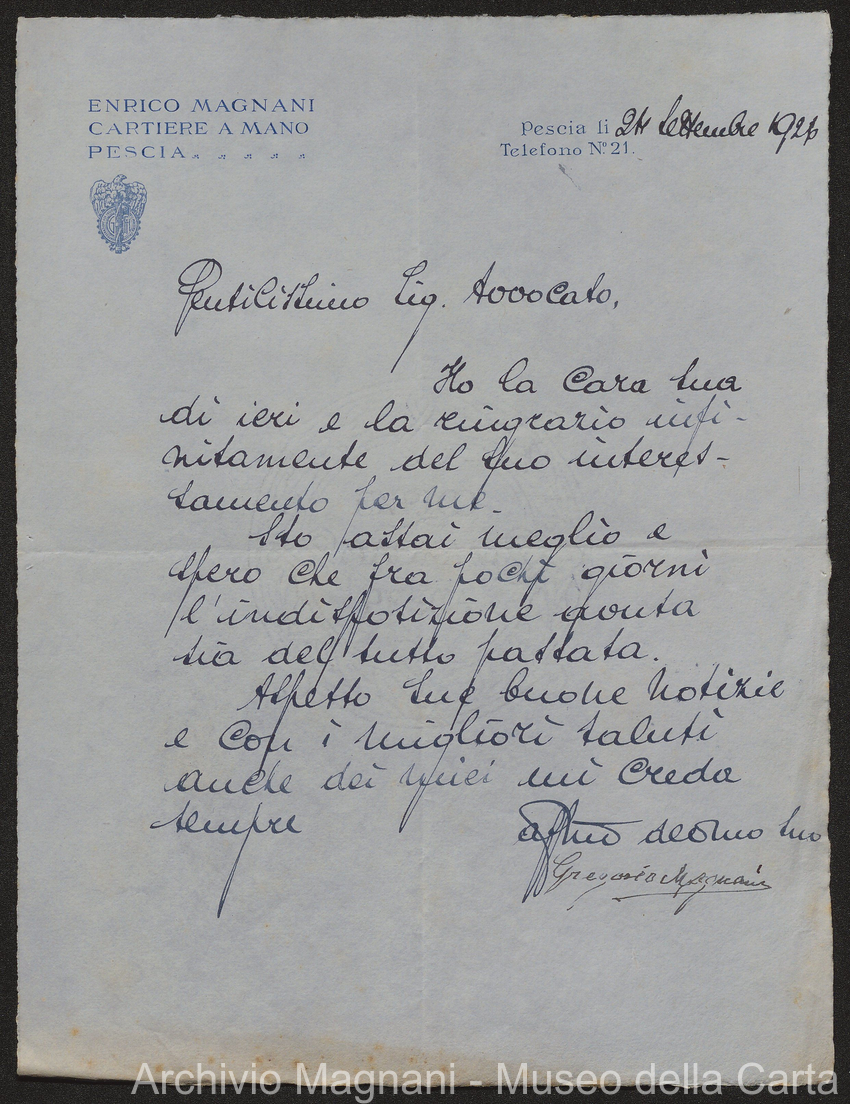 ENRICO MAGNANI
CARTIERE A MANO
PESCIA
Pescia li 24 Settembre 192
Telefono Nº 21.
Gentilissimo Sig. Avvocato,
Ho la cara sua
di ieri e la ringrazio infi-
nitamente del suo interes-
samento per me.
Sto assai meglio e
spero che fra pochi giorni
l'indisposizione avuta
sia del tutto passata.
Aspetto sue buone notizie
e con i migliori saluti
anche dei miei mi creda
sempre
affmo devmo suo
Gregorio Magnani
Archivio Magnani - Museo della Carta